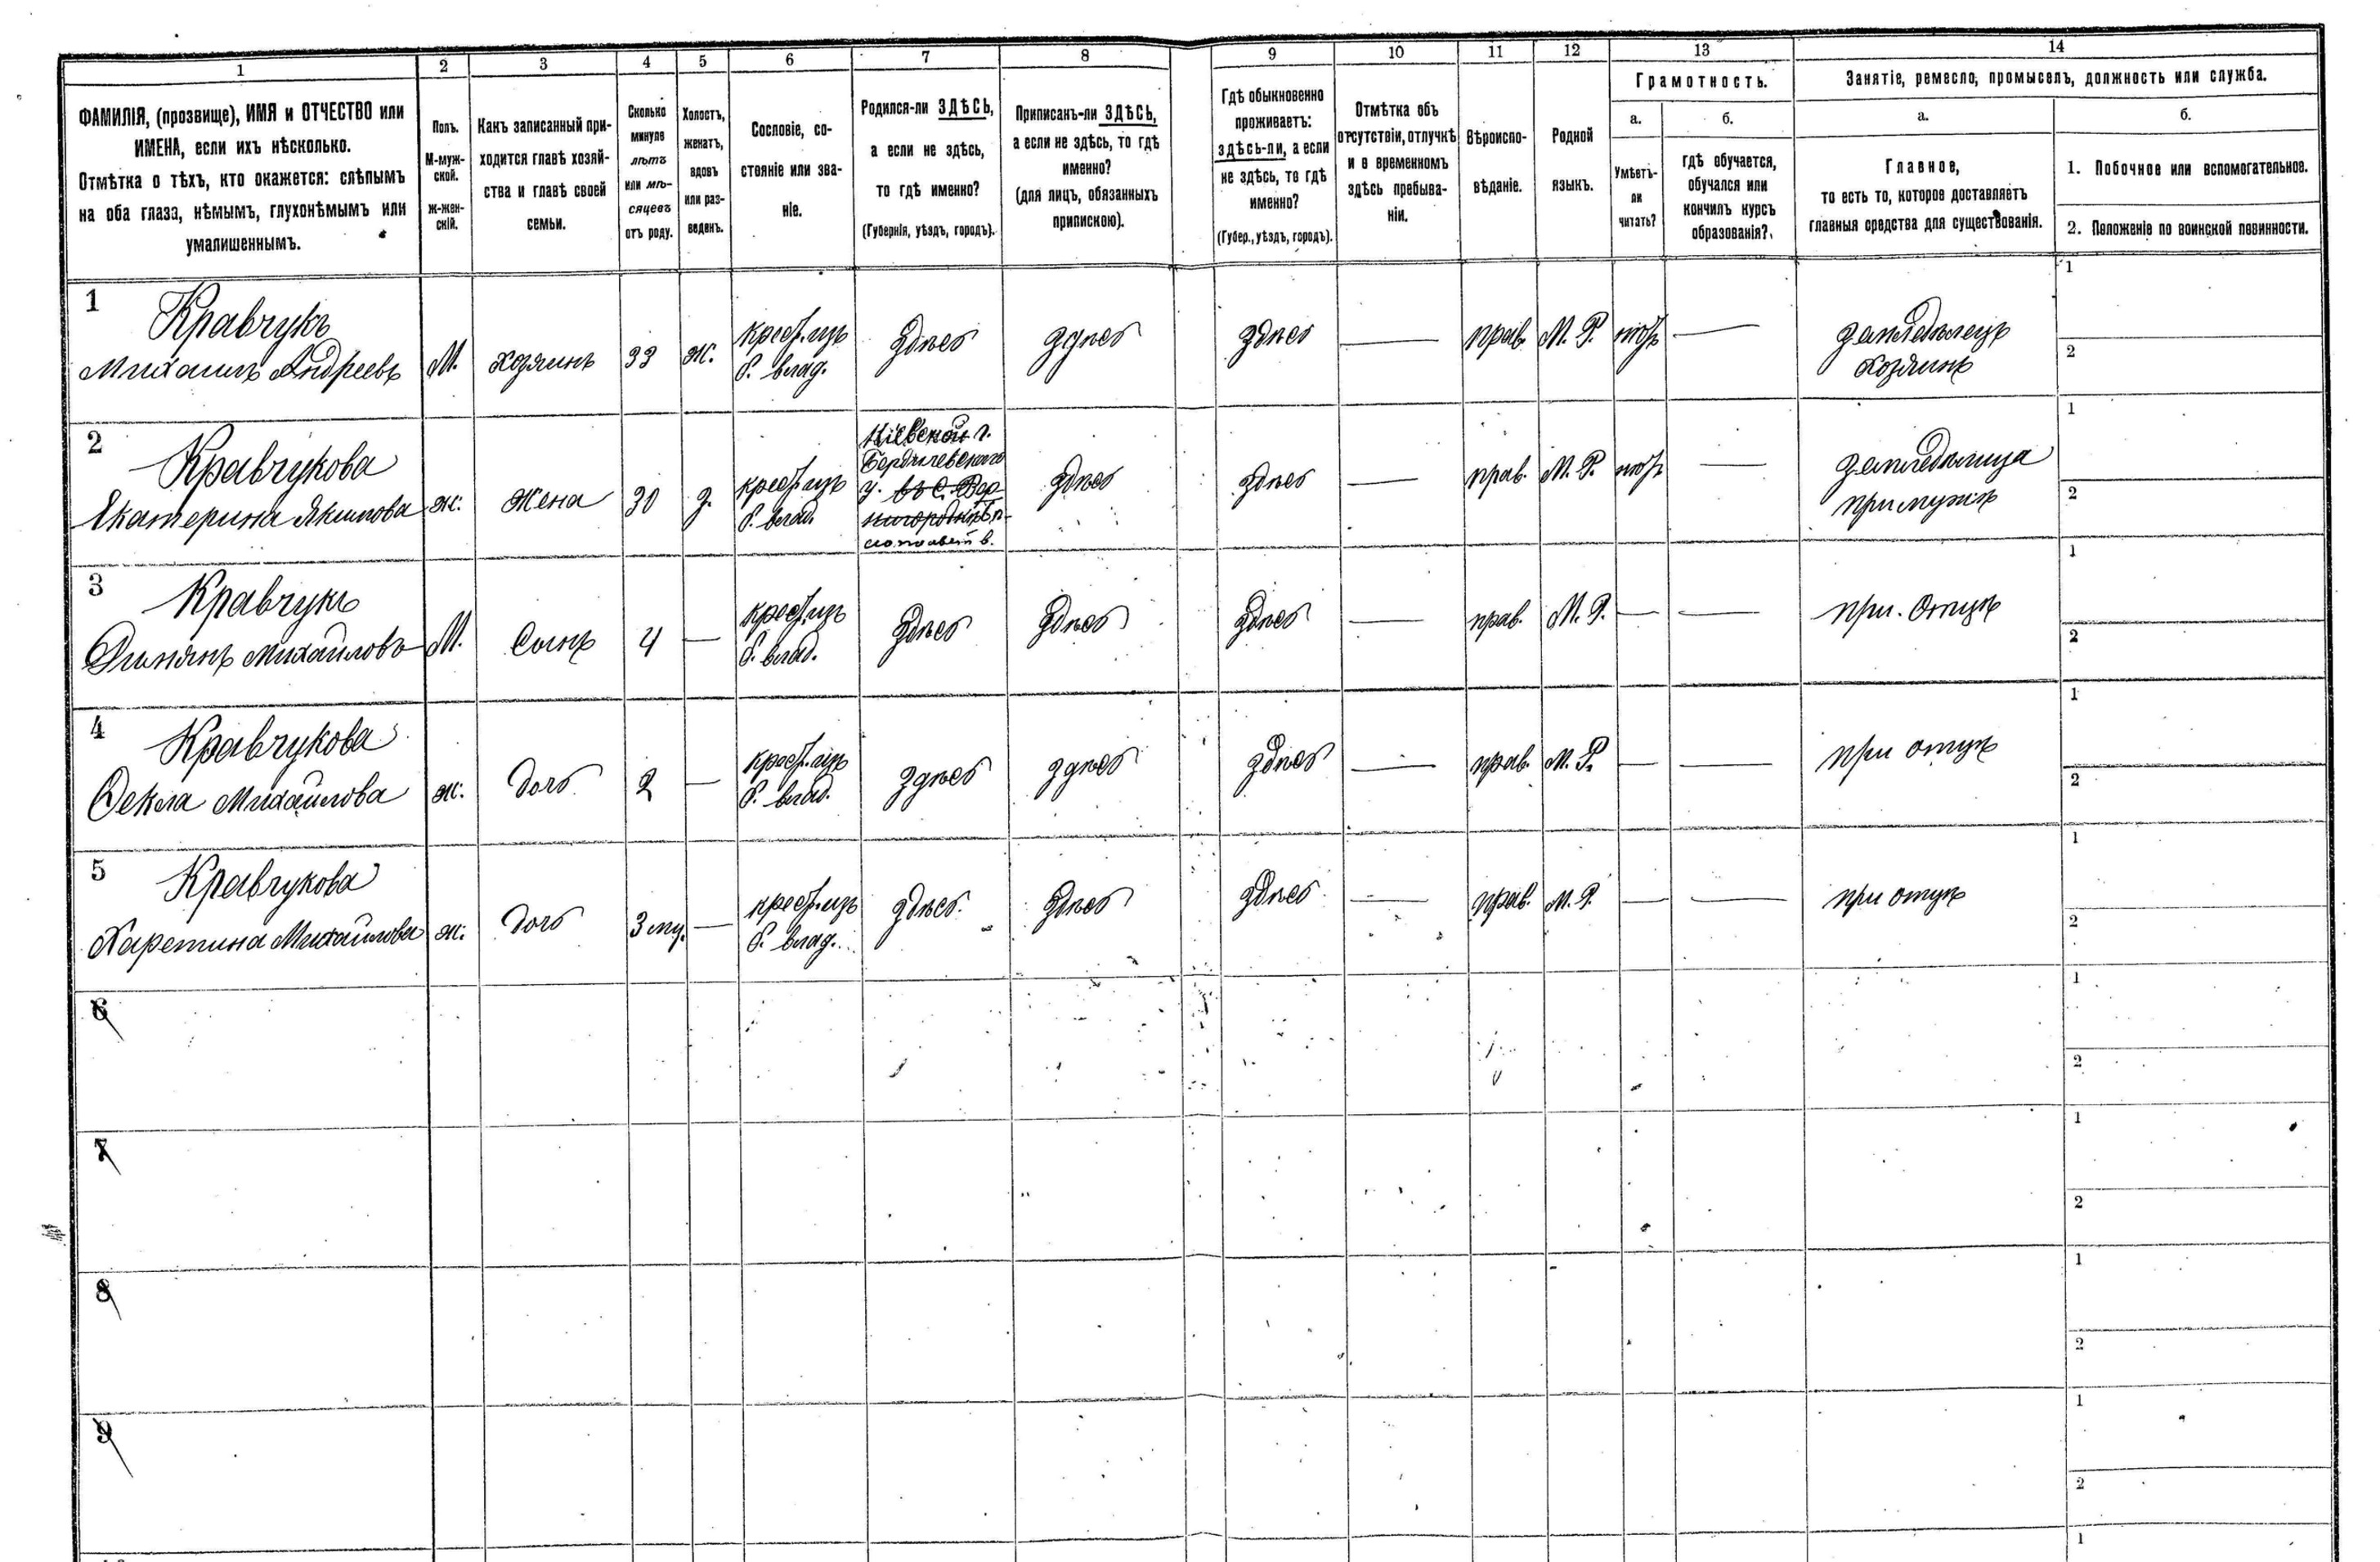 1 2 3 4 5 6 7 8 9 10 11 12 13 14
ФАМИЛІЯ, (прозвище), ИМЯ и ОТЧЕСТВО или
ИМЕНА, если ихъ нѣсколько.
Отмѣтка о тѣхъ, кто окажется: слѣпымъ
на оба глаза, нѣмымъ, глухонѣмымъ или
умалишеннымъ.
Полъ.
М-муж-
ской.
ж-жен-
скій.
Какъ записанный при-
ходится главѣ хозяй-
ства и главѣ своей
семьи.
Сколько
минуло
лѣтъ
или мѣ-
сяцевъ
отъ роду.
Холостъ,
женатъ,
вдовъ
или раз-
веденъ.
Сословіе, со-
стояніе или зва-
ніе.
Родился-ли ЗДѢСЬ,
а если не здѣсь,
то гдѣ именно?
(Губернія, уѣздъ, городъ).
Приписанъ-ли ЗДѢСЬ,
а если не здѣсь, то гдѣ
именно?
(для лицъ, обязанныхъ
припискою).
Гдѣ обыкновенно
проживаетъ:
здѣсь-ли, а если
не здѣсь, то гдѣ
именно?
(Губер., уѣздъ, городъ).
Отмѣтка объ
отсутствіи, отлучкѣ
и о временномъ
здѣсь пребыва-
ніи.
Вѣроиспо-
вѣданіе.
Родной
языкъ.
Грамотность.
а.
Умѣетъ-
ли
читать?
б.
гдѣ обучается,
обучался или
кончилъ курсъ
образованія?
Занятіе, ремесло, промыселъ, должность или служба.
а.
Главное,
то есть то, которое доставляетъ
главныя средства для существованія.
б.
1. Побочное или вспомогательное.
2. Положеніе по воинской повинности.
1 Кравчукъ
Михаилъ Андреевъ М. хозяинъ 33 ж. крест. изъ
б. влад. здѣсь здѣсь здѣсь — прав. М. Р. нѣтъ — земледѣлецъ
хозяинъ
1
2
2 Кравчукова
Екатерина Якимова ж. Жена 30 з. крест. изъ
б. влад.
Кіевской г.
Бердичевскаго
у. въ с.
здѣсь здѣсь — прав. М. Р. нѣтъ — земледѣлица
при мужѣ
1
2
3 Кравчукъ
Михаиловъ М. Сынъ 4 — крест. изъ
б. влад. здѣсь здѣсь здѣсь — прав. М. Р. — — при. Отцѣ
1
2
4 Кравчукова
Ѳекла Михаилова ж. Дочь 2 — крест. изъ
б. влад. здѣсь здѣсь здѣсь — прав. М. Р. — — при отцѣ
1
2
5 Кравчукова
Харетина Михаилова ж. Дочь 3 — крест. изъ
б. влад. здѣсь здѣсь здѣсь — прав. М. Р. — — при отцѣ
1
2
6
1
2
7
1
2
8
1
2
9
1
2
1